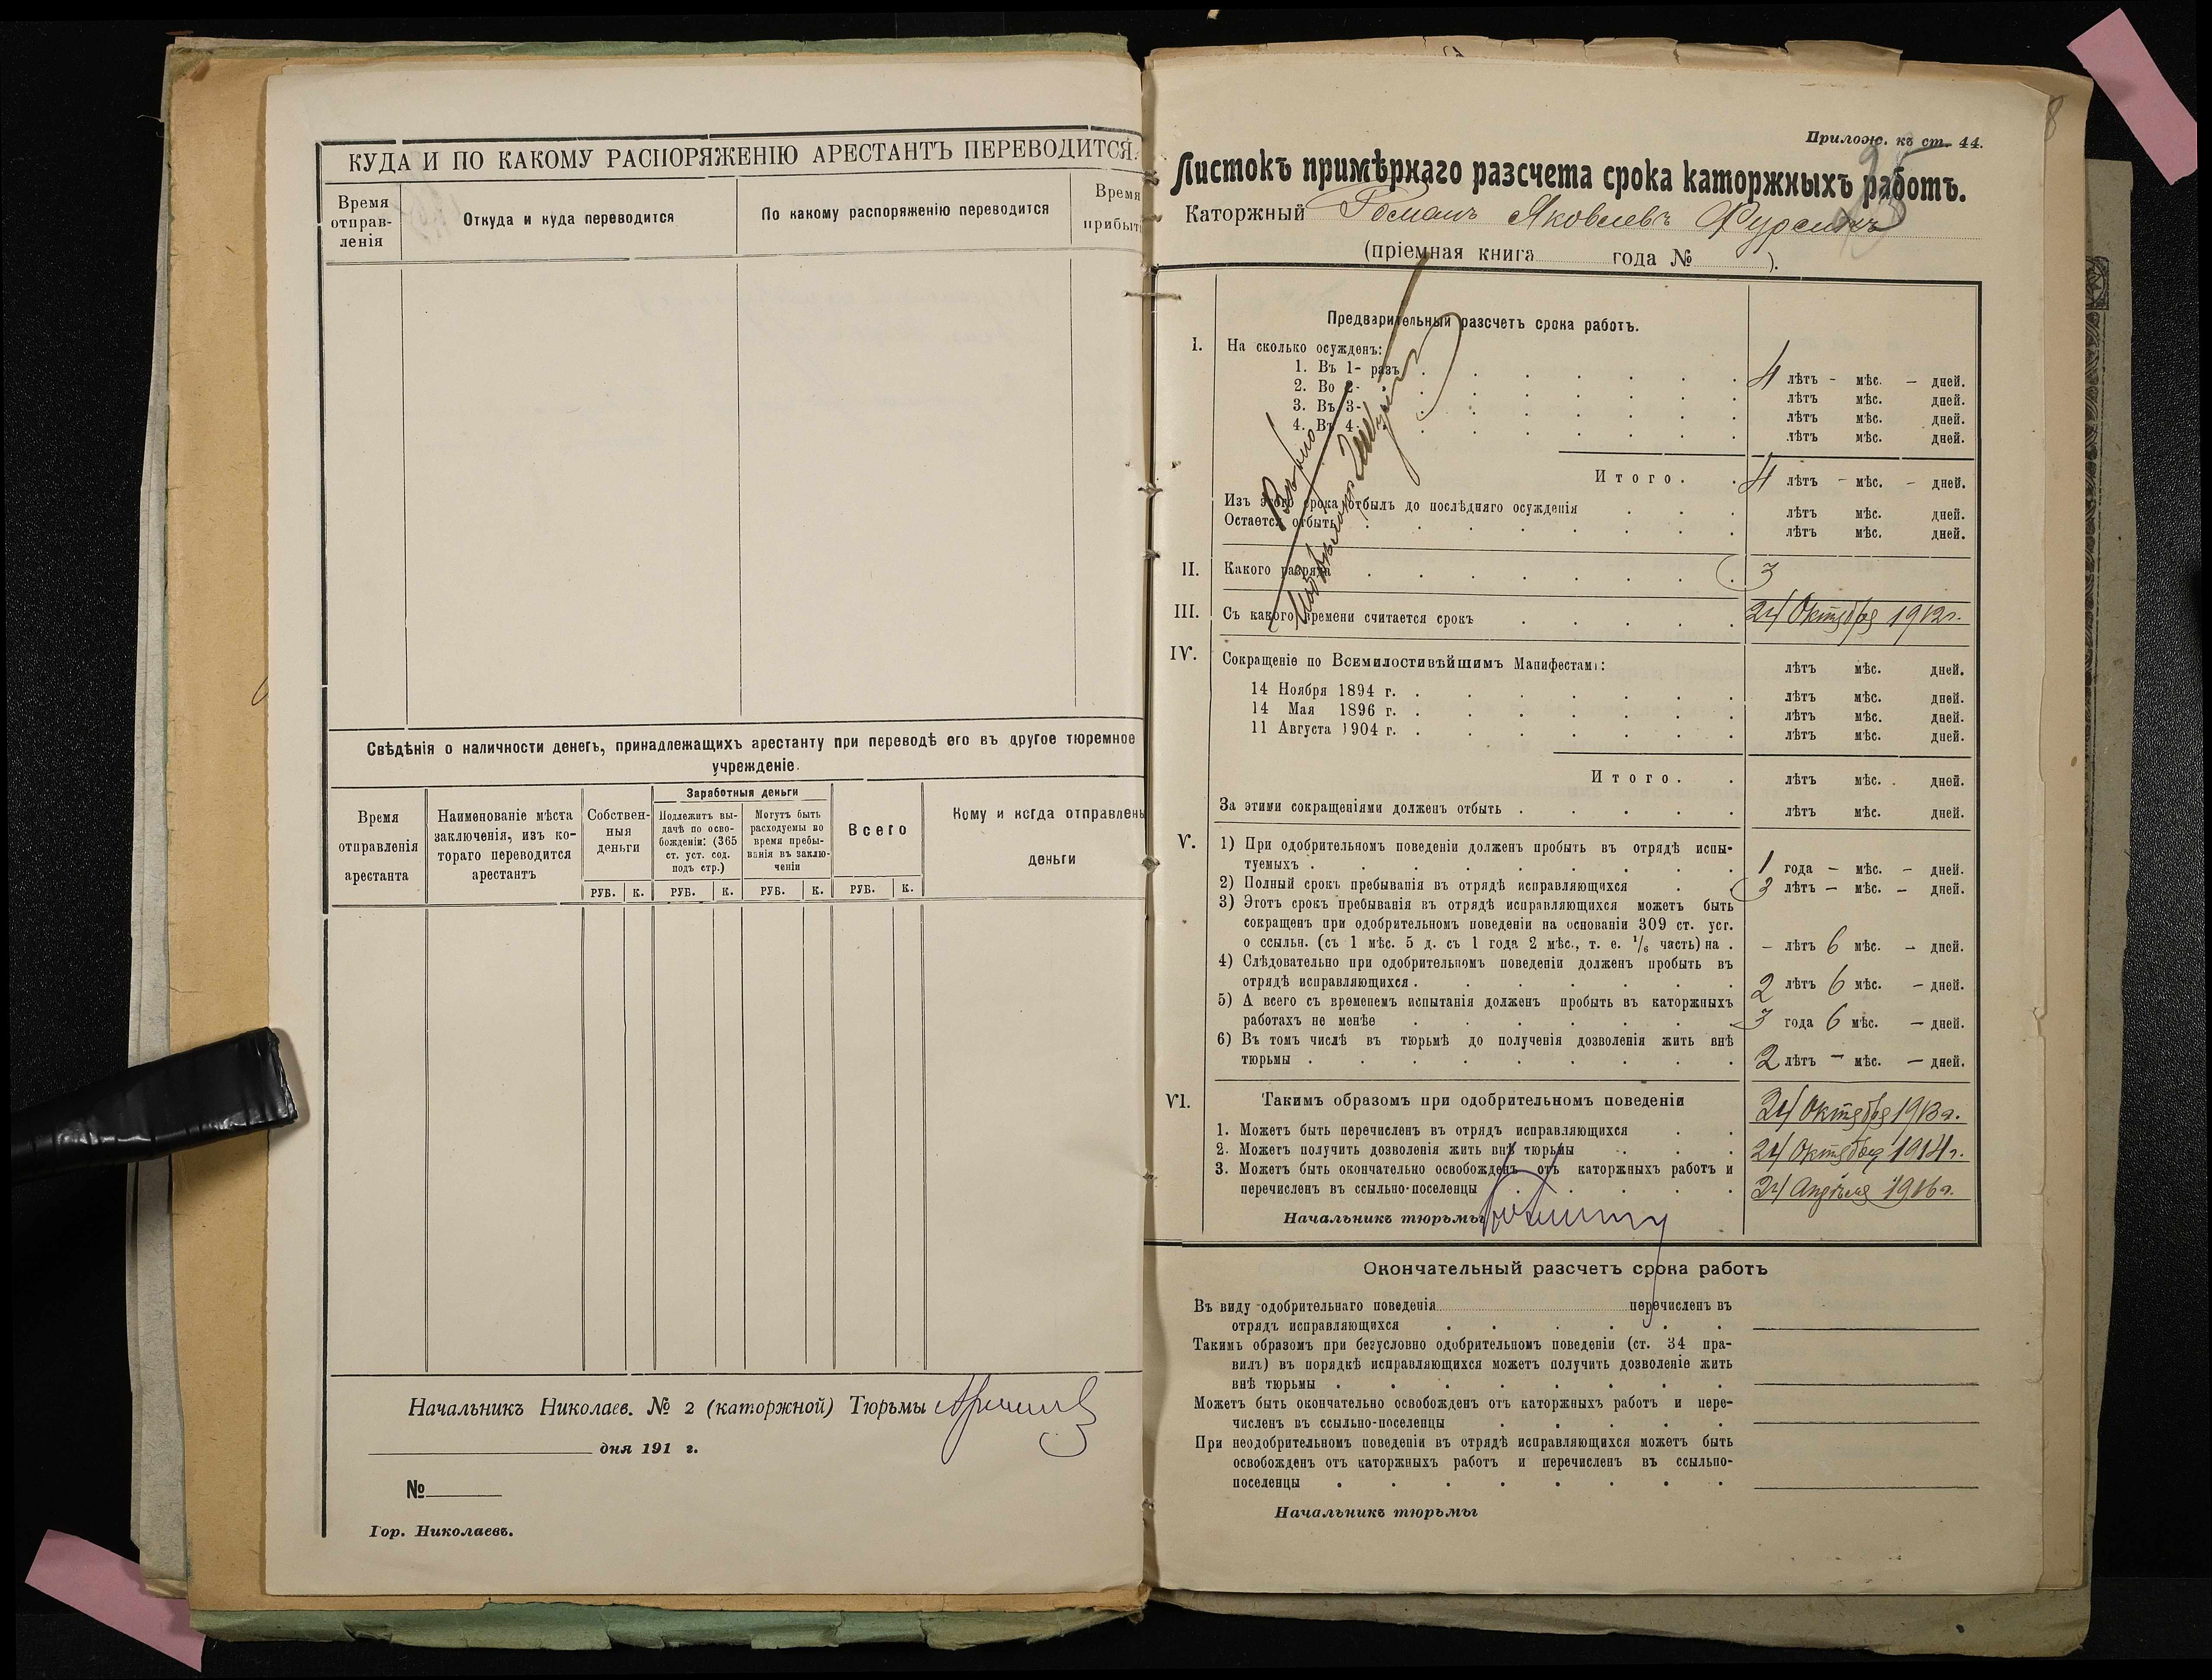 КУДА И ПО КАКОМУ РАСПОРЯЖЕНІЮ АРЕСТАНТЪ ПЕРЕВОДИТСЯ.
Время отправ-
ленія
Откуда и куда переводится
По какому распоряженію переводится
Время
прибыт
Свѣдѣнія о наличности денегъ, принадлежащихъ арестанту при переводѣ его въ другое тюремное
учрежденіе.
Время
отправленія
арестанта
Наименованіе мѣста
заключенія, изъ ко-
тораго переводится
арестантъ
Собствен-
ныя
деньги
Заработныя деньги
Подлежитъ вы-
дачѣ по осво-
божденіи: (365
ст. уст. сод.
подъ стр.)
Могутъ быть
расходуемы во
время пребы-
ванія въ заклю-
ченіи
Всего
Кому и когда отправлены
деньги
РУБ. К. РУБ. К. РУБ. К. РУБ. К.
Начальникъ Николаев. № 2 (каторжной) Тюрьмы
дня 191 г.
№
Гор. Николаевъ.
8
Прилож. къ ст. 44.
Листокъ примѣрнаго разсчета срока каторжныхъ работъ.
Каторжный Романъ Яковлевъ Фурсикъ
(пріемная книга года № ).
Предварительный разсчетъ срока работъ.
I. На сколько осужденъ:
1. Въ 1- разъ 4 лѣтъ - мѣс. - дней.
2. Во 2- лѣтъ мѣс. дней.
3. Въ 3- лѣтъ мѣс. дней.
4. Въ 4- лѣтъ мѣс. дней.
Итого. 4 лѣтъ - мѣс. - дней.
Изъ этого срока отбылъ до послѣдняго осужденія лѣтъ мѣс. дней.
Остается отбыть лѣтъ мѣс. дней.
Вѣрно
II. Какого разряда 3
III. Съ какого времени считается срокъ 24 Октября 1912г.
IV. Сокращеніе по Всемилостивѣйшимъ Манифестамъ: лѣтъ мѣс. дней.
14 Ноября 1894 г. лѣтъ мѣс. дней.
14 Мая 1896 г. лѣтъ мѣс. дней.
11 Августа 1904 г. лѣтъ мѣс. дней.
Итого. лѣтъ мѣс. дней.
За этими сокращеніями долженъ отбыть лѣтъ мѣс. дней.
V. 1) При одобрительномъ поведеніи долженъ пробыть въ отрядѣ испы-
туемыхъ 1 года - мѣс. - дней.
2) Полный срокъ пребыванія въ отрядѣ исправляющихся 3 лѣтъ - мѣс. - дней.
3) Этотъ срокъ пребыванія въ отрядѣ исправляющихся можетъ быть
сокращенъ при одобрительномъ поведеніи на основаніи 309 ст. уст.
о ссыльн. (съ 1 мѣс. 5 д. съ 1 года 2 мѣс., т. е. 1/6 часть) на - лѣтъ 6 мѣс. - дней.
4) Слѣдовательно при одобрительномъ поведеніи долженъ пробыть въ
отрядѣ исправляющихся 2 лѣтъ 6 мѣс. - дней.
5) А всего съ временемъ испытанія долженъ пробыть въ каторжныхъ
работахъ не менѣе 3 года 6 мѣс. - дней.
6) Въ томъ числѣ въ тюрьмѣ до полученія дозволенія жить внѣ
тюрьмы 2 лѣтъ - мѣс. - дней.
VI. Такимъ образомъ при одобрительномъ поведеніи
1. Можетъ быть перечисленъ въ отрядъ исправляющихся 24 Октября 1913г.
2. Можетъ получить дозволенія жить внѣ тюрьмы 24 Октября 1914г.
3. Можетъ быть окончательно освобожденъ отъ каторжныхъ работъ и
перечисленъ въ ссыльно-поселенцы 24 Апрѣля 1916г.
Начальникъ тюрьмы
Окончательный разсчетъ срока работъ
Въ виду одобрительнаго поведенія перечисленъ въ
отрядъ исправляющихся
Такимъ образомъ при безусловно одобрительномъ поведеніи (ст. 34 пра-
вилъ) въ порядкѣ исправляющихся можетъ получить дозволеніе жить
внѣ тюрьмы
Можетъ быть окончательно освобожденъ отъ каторжныхъ работъ и пере-
численъ въ ссыльно-поселенцы
При неодобрительномъ поведеніи въ отрядѣ исправляющихся можетъ быть
освобожденъ отъ каторжныхъ работъ и перечисленъ въ ссыльно-
поселенцы
Начальникъ тюрьмы